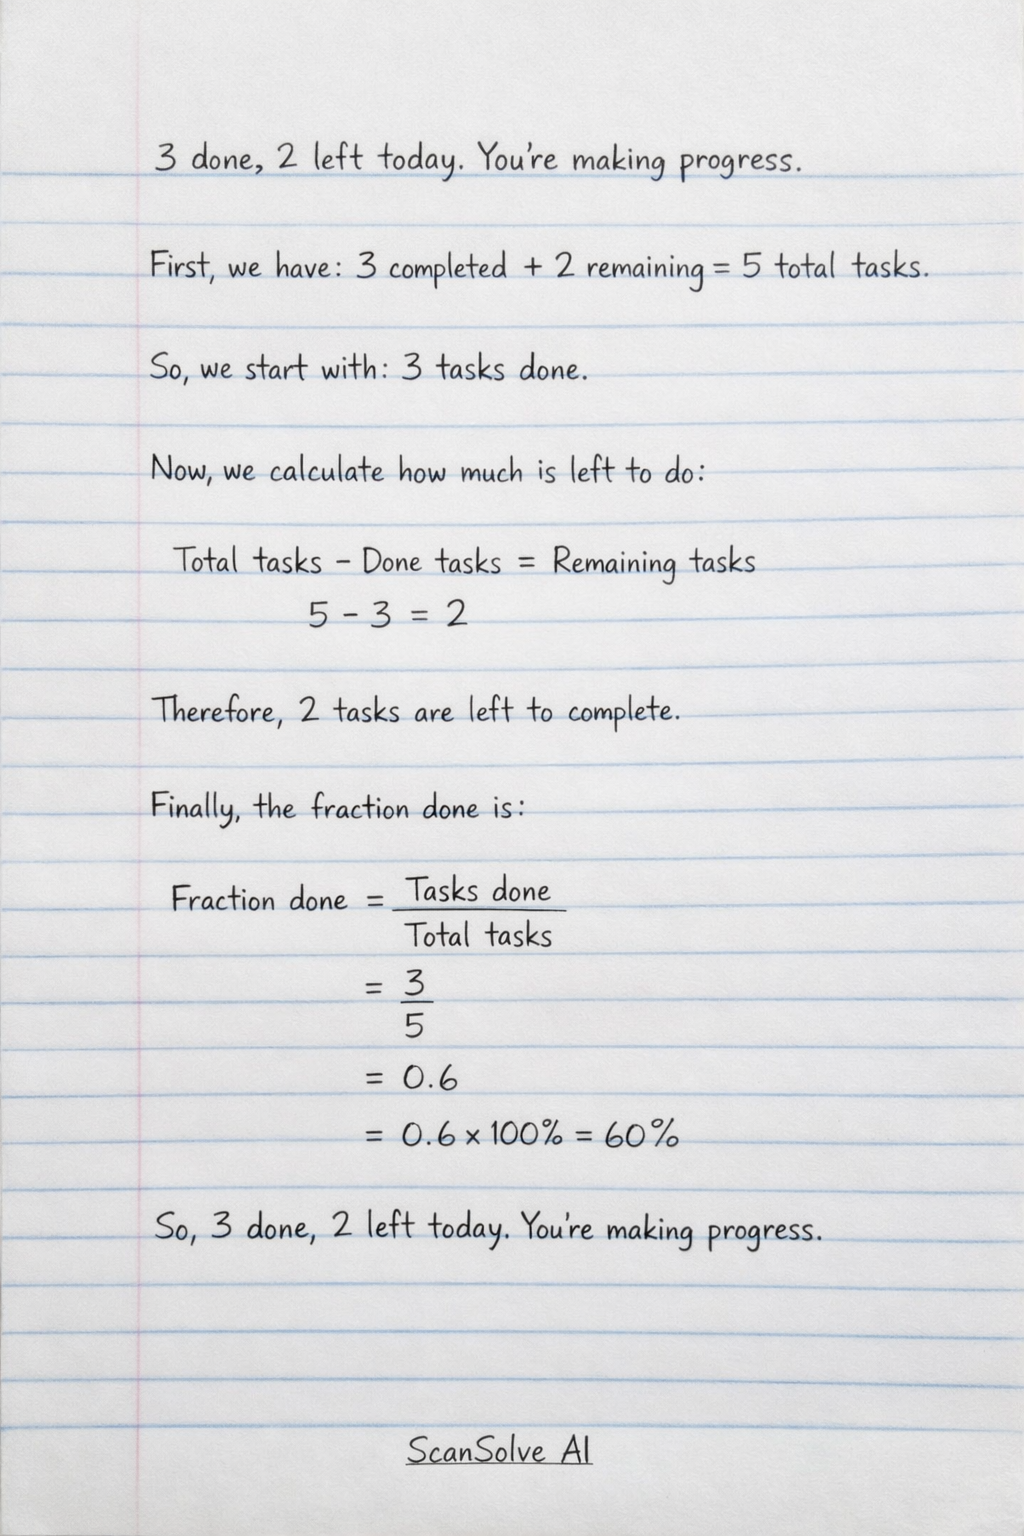 3 done, 2 left today. You're making progress.
First, we have: 3 completed + 2 remaining = 5 total tasks.
So, we start with: 3 tasks done.
Now, we calculate how much is left to do:
Total tasks – Done tasks = Remaining tasks
5 – 3 = 2
Therefore, 2 tasks are left to complete.
Finally, the fraction done is:
Fraction done = Tasks done
Total tasks
= 3
5
= 0.6
= 0.6 x 100% = 60%
So, 3 done, 2 left today. You're making progress.
ScanSolve AI